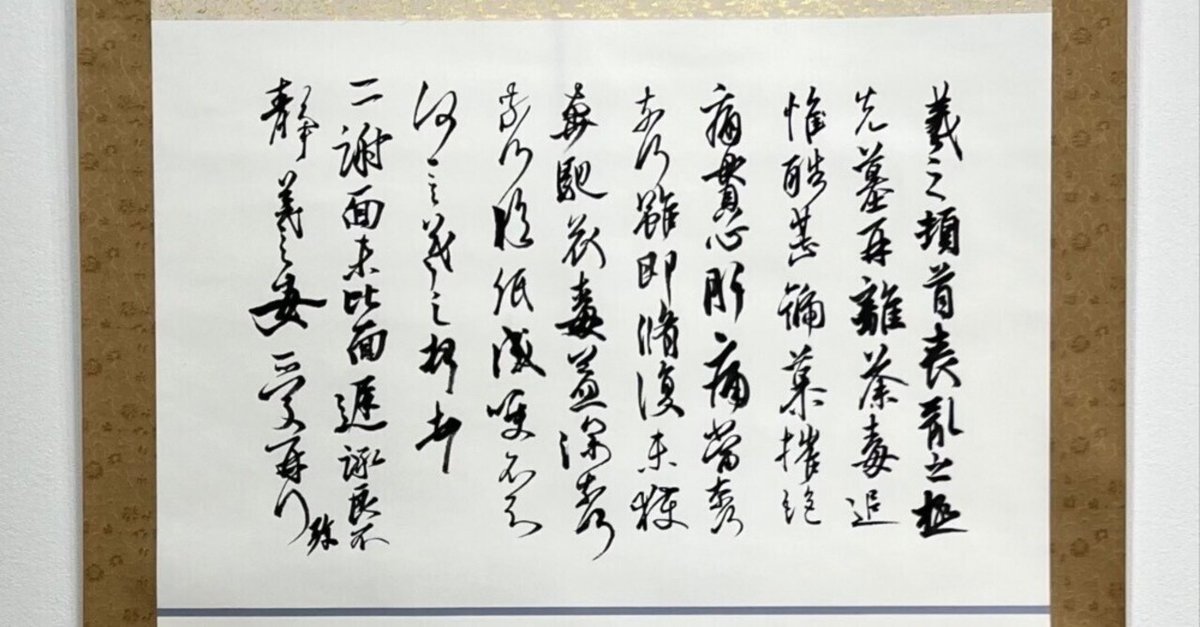 羲之頓首喪亂之極
先墓再離荼毒追
惟酷甚號慕摧絶
痛貫心肝痛當奈何
奈何雖即脩復未獲
奔馳哀毒益深奈何
奈何臨紙感哽不知
何言羲之頓首頓首
二謝面未比面遲詠良不
靜羲之女愛再拜